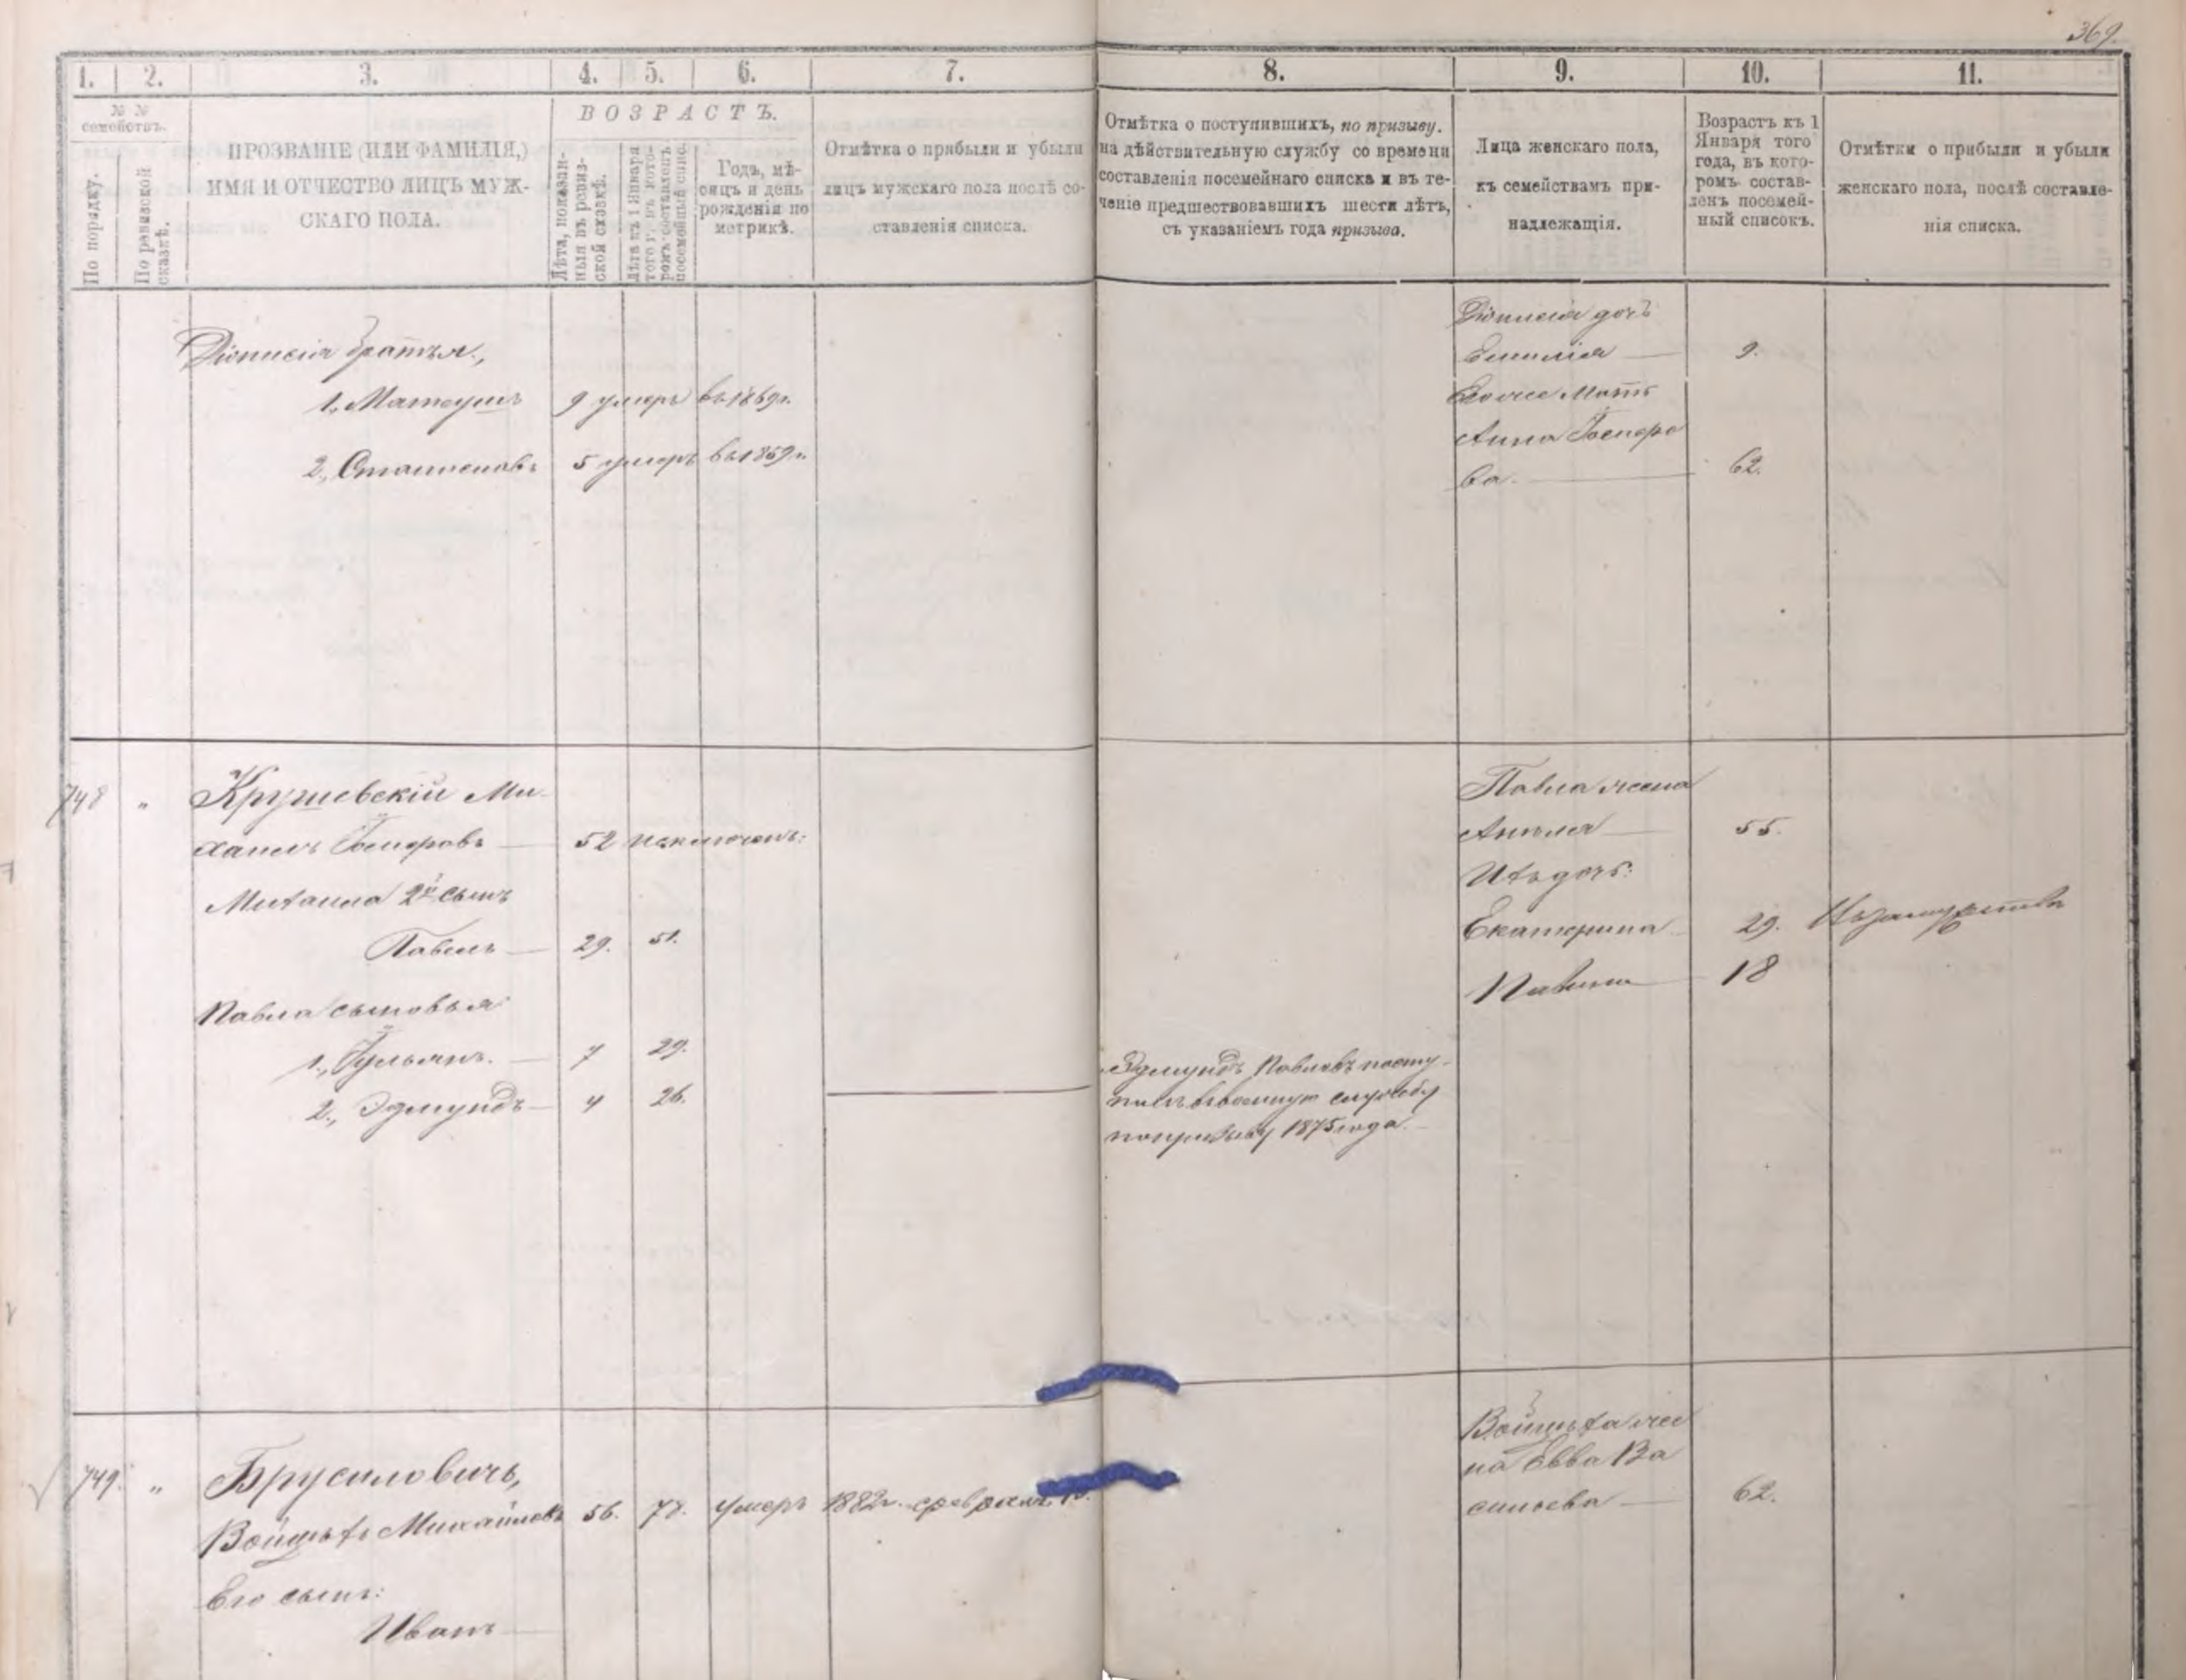 369.
1. 2. 3. 4. 5. 6. 7. 8. 9. 10. 11.
№ №
семействъ.
По порядку.
По ревизской
сказкѣ.
ПРОЗВАНІЕ (ИЛИ ФАМИЛІЯ,)
ИМЯ И ОТЧЕСТВО ЛИЦЪ МУЖ-
СКАГО ПОЛА.
ВОЗРАСТЪ.
Лѣта, показан-
ныя въ ревиз-
ской сказкѣ.
Лѣта къ 1 Января
того г., въ кото-
ромъ составленъ
посемейный спис.
Годъ, мѣ-
сяцъ и день
рожденія по
метрикѣ.
Отмѣтка о прибыли и убыли
лицъ мужскаго пола послѣ со-
ставленія списка.
Отмѣтка о поступившихъ, по призыву.
на дѣйствительную службу со времени
составленія посемейнаго списка и въ те-
ченіе предшествовавшихъ шести лѣтъ,
съ указаніемъ года призыва.
Лица женскаго пола,
къ семействамъ при-
надлежащія.
Возрастъ къ 1
Января того
года, въ кото-
ромъ состав-
ленъ посемей-
ный списокъ.
Отмѣтки о прибыли и убыли
женскаго пола, послѣ составле-
нія списка.
Діонисія братья.,
1., Матеушъ 9 умеръ въ 1869 г.
2., Станиславъ 5 умеръ въ 1859 г.
Діонисія дочь
Емилія 9.
Анна
ва. 62.
748 " Крушевскій Ми-
хаилъ 52 исключенъ:
Михаила 2й сынъ
Павелъ 29. 51.
Павла сыновья:
1., Юльянъ. 7 29.
2., Эдмундъ 4 26.
Эдмундъ Павловъ посту-
пилъ въ военную службу
по призыву 1875 года.
Павла жена
Анеля 55.
Ихъ дочь:
Екатерина 29. Въ замужствѣ
18
749. " Брусиловичъ,
Войцѣхъ Михайловъ 56. 77. умеръ 1882 г. февраля
Его сынъ:
Иванъ
Войцѣха же
на Евва Ва
сильева 62.